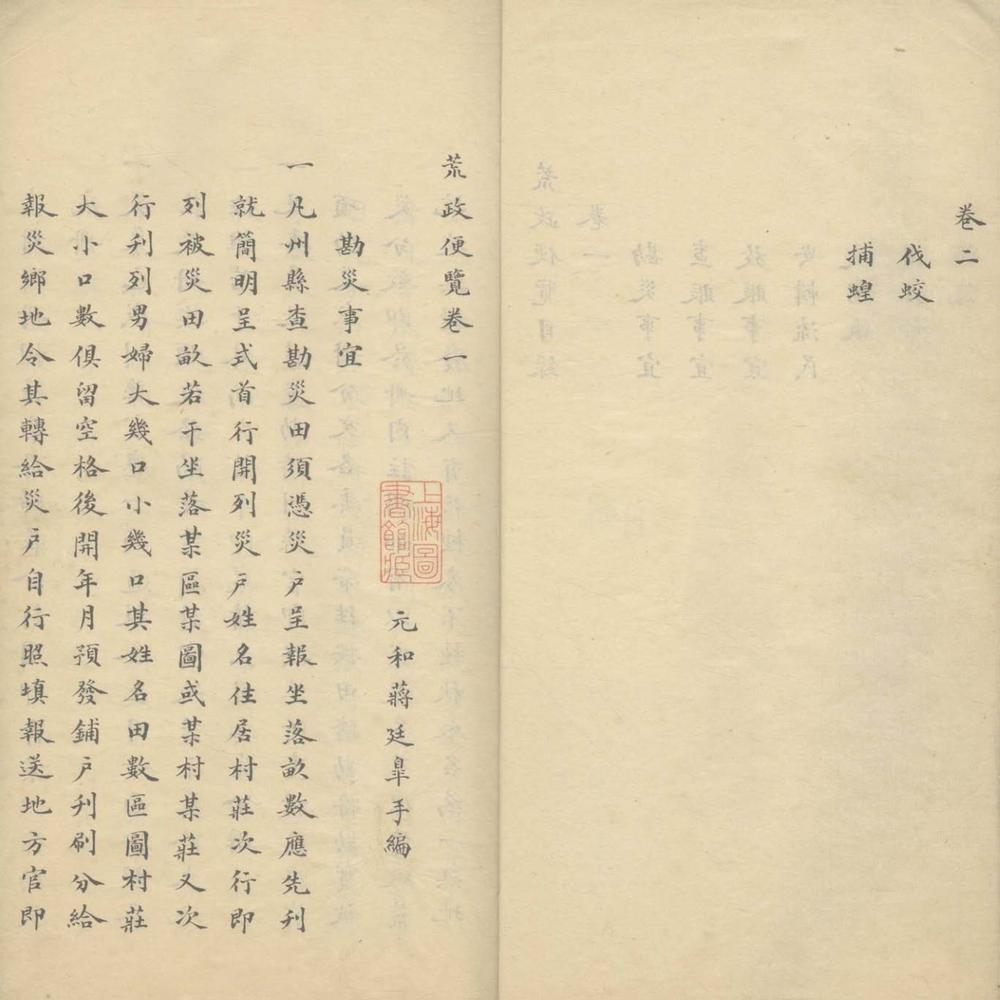 卷二
伐蛟
捕蝗
荒政便覽卷一
元和蔣廷皐手編
上海圖書館臧
勘災事宜
一凡州縣查勘災田須憑災户呈報坐落畝數應先刋
就簡明呈式首行開列災户姓名住居村莊次行即
列被災田畝若干坐落某區某圖或某村某莊又次
行刋列男婦大幾口小幾口其姓名田數區圖村莊
大小口數俱留空格後開年月預發鋪户刋刷分給
報災鄉地令其轉給災户自行照填報送地方官即